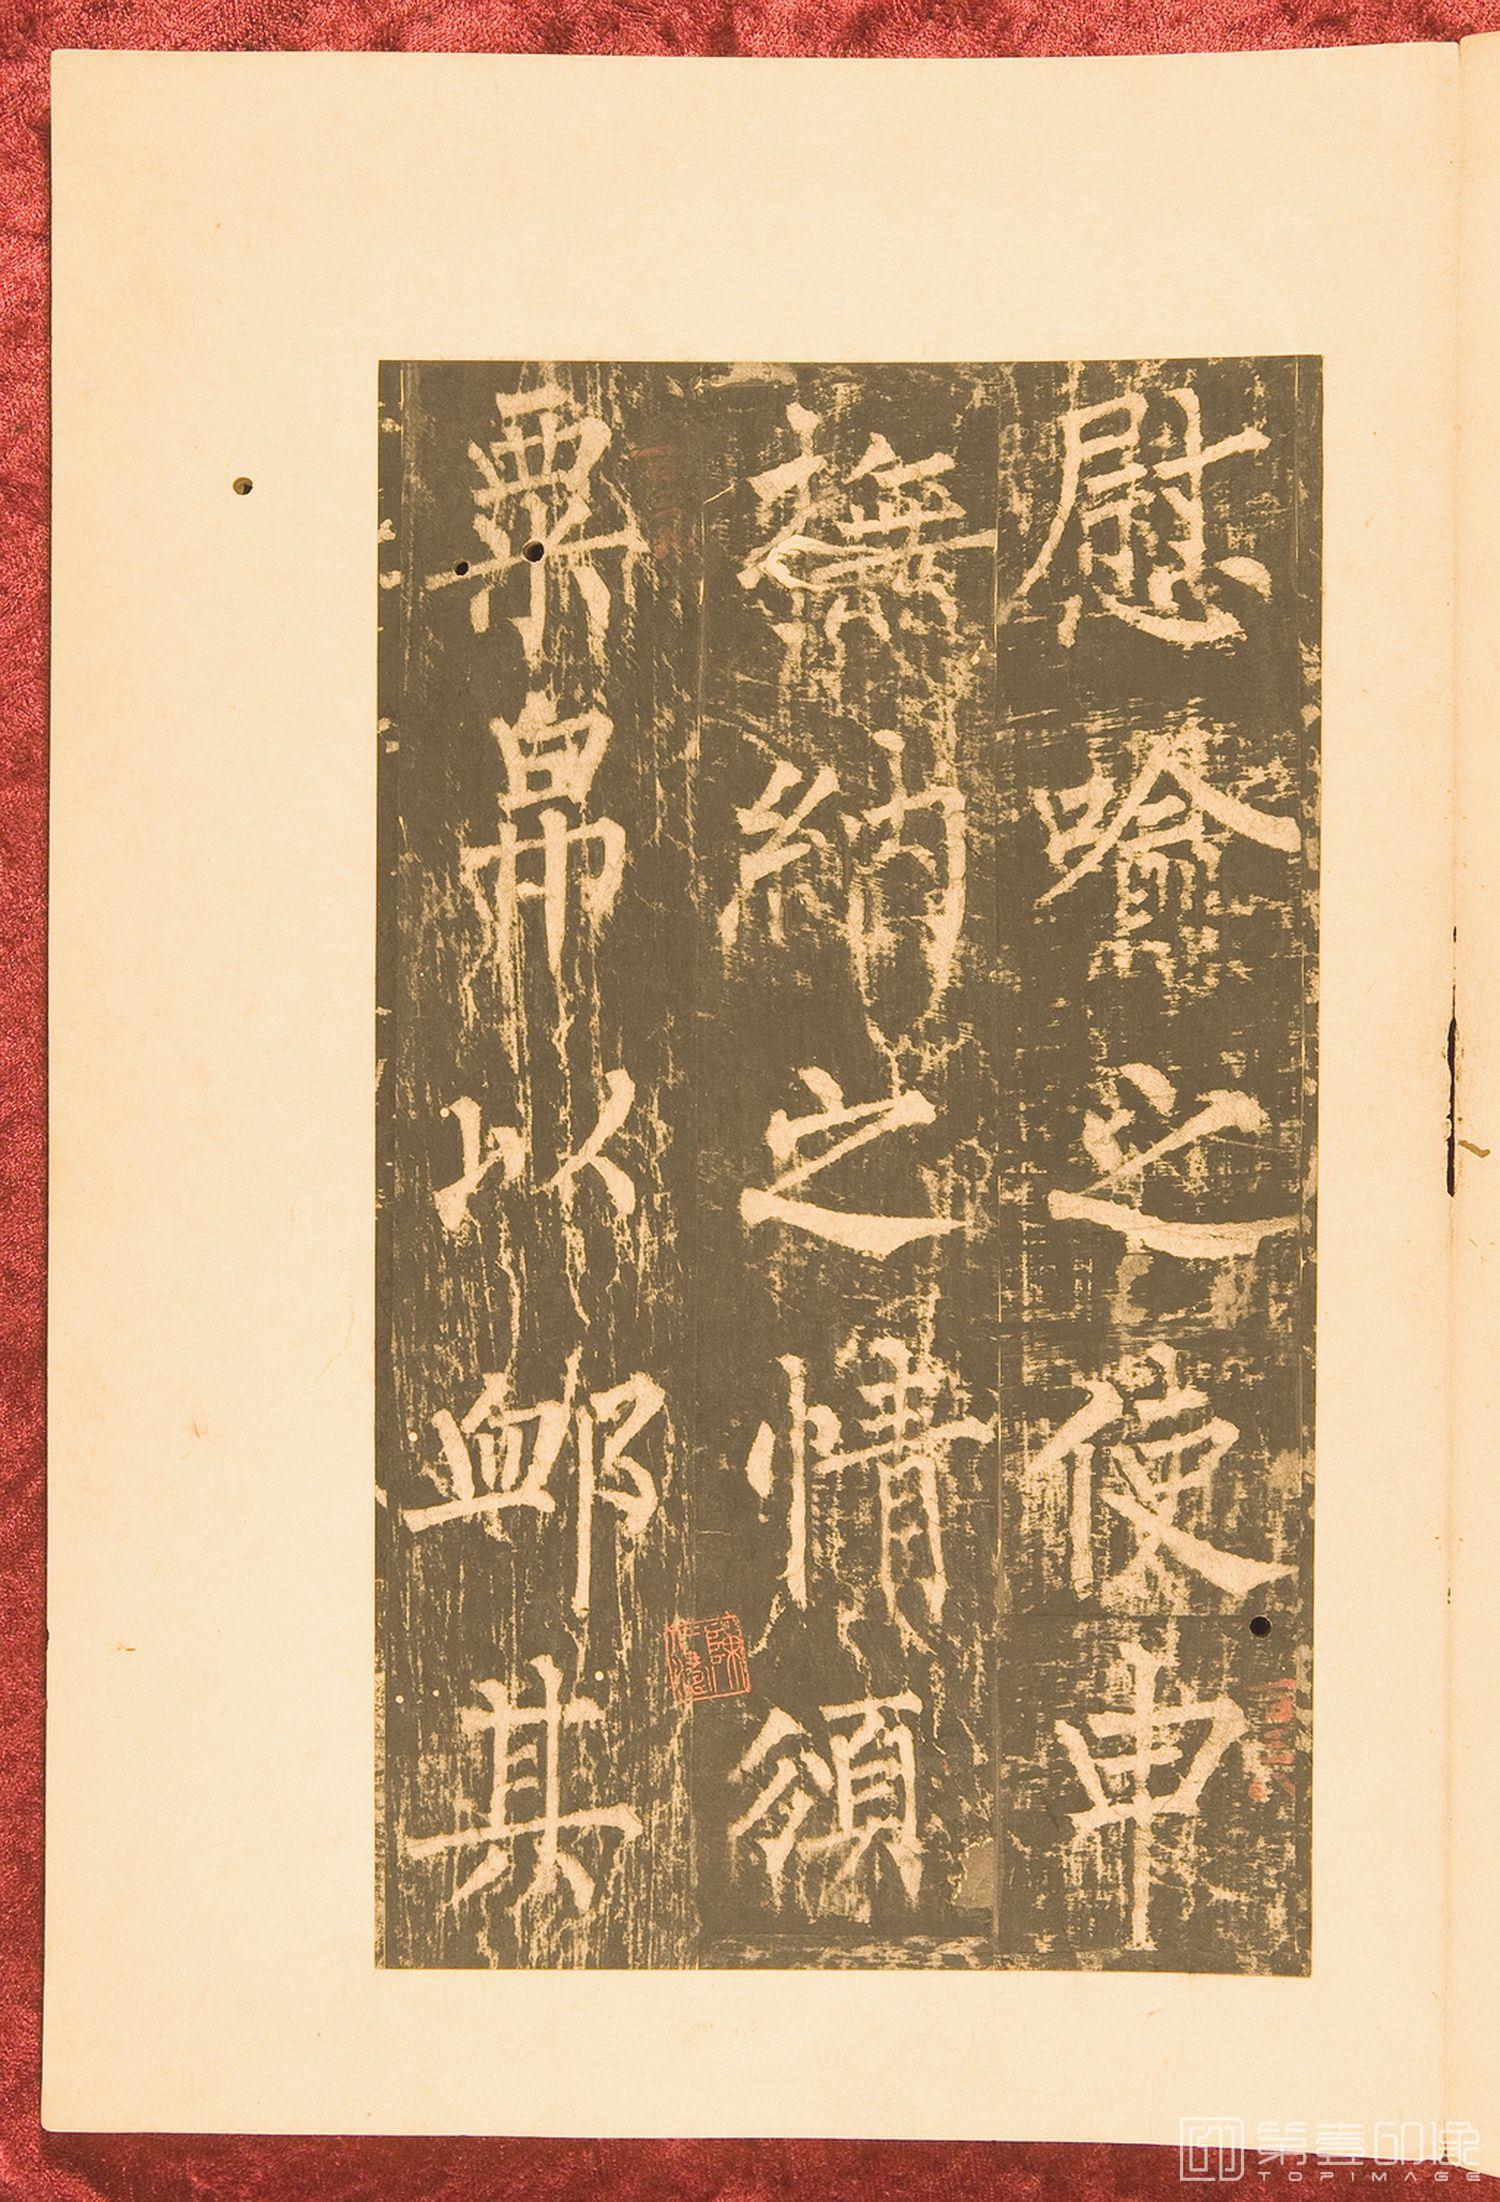 慰喻之使申
撫納之情頒
粟帛以卹其
第壹印像
TOPIMAGE